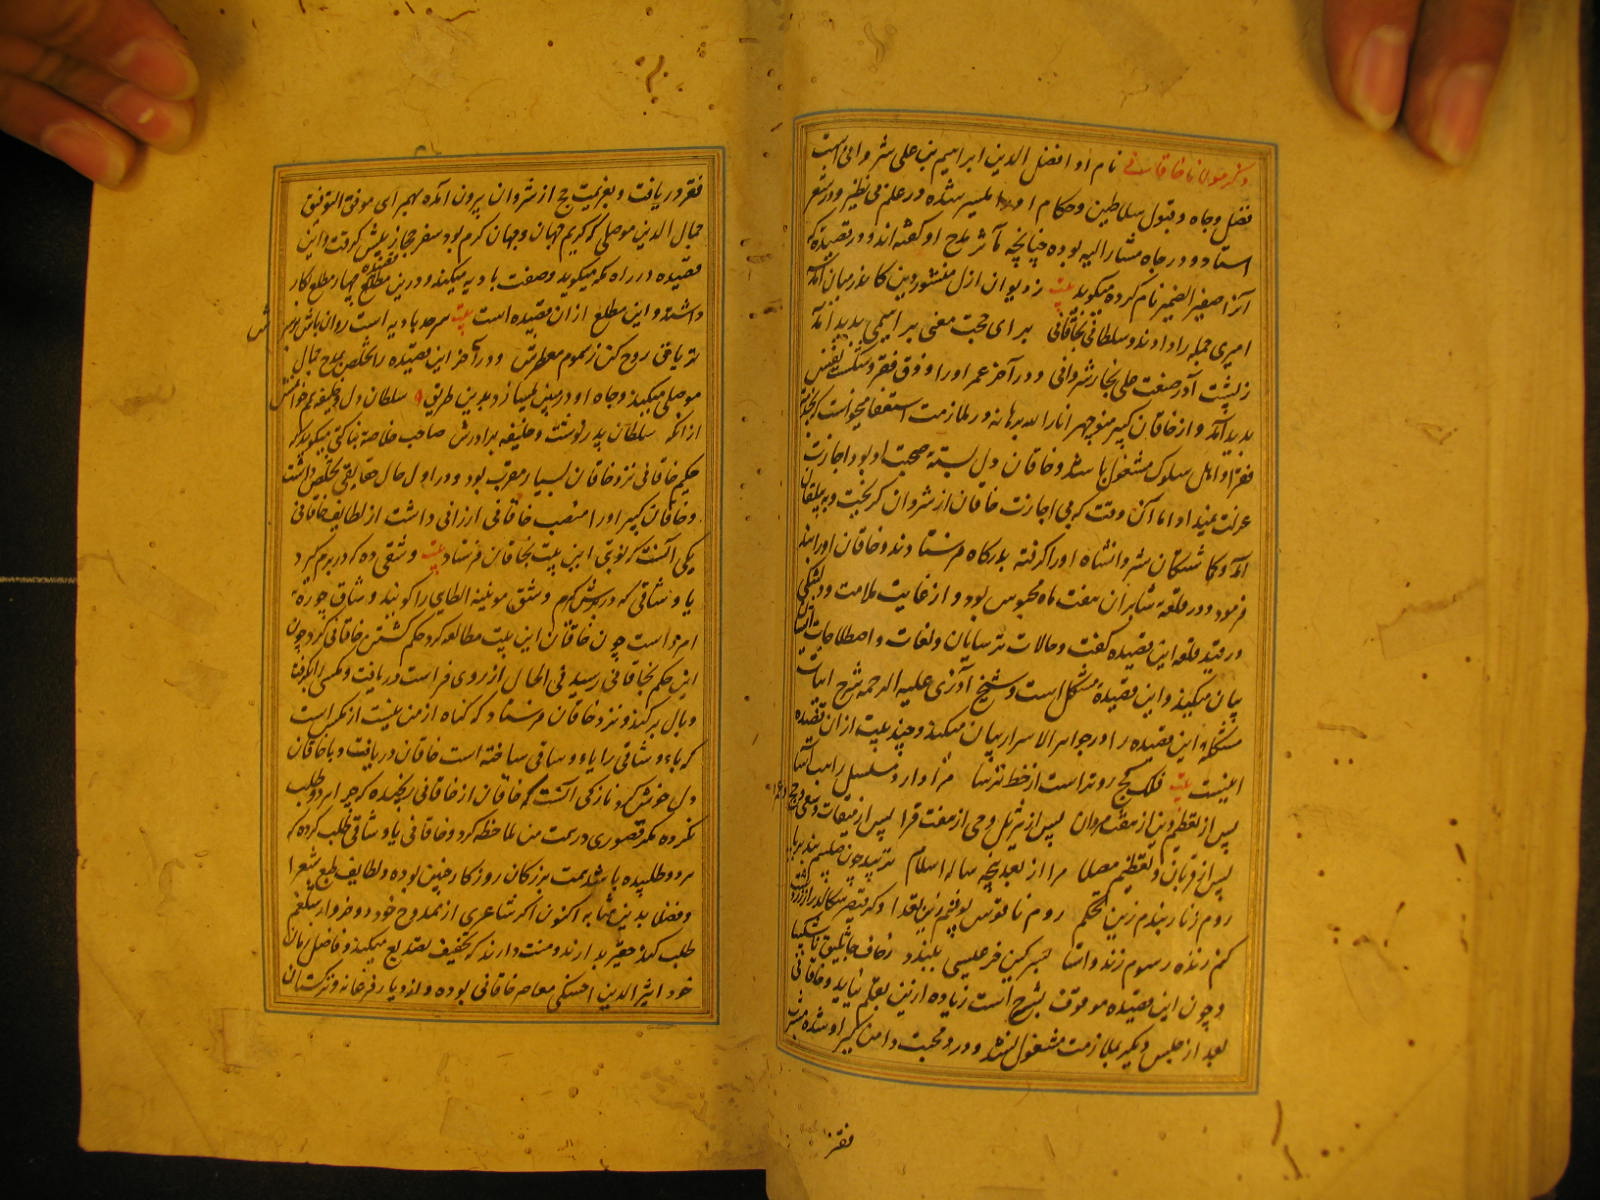 ذکر مولانا خاقانی نام او افضل الدین ابراهیم بن علی شروانی است
فضل و جاه و قبول سلاطین و حکام او را میسر شده در علم بی نظیر و در شعر
استاد و در جاه مشار الیه بوده چنانچه مآثر مدح او گفته اند و در قصیده که
آنرا صفیر الضمیر نام کرده میگوید بیت ز دیوان ازل منشور دین کا ندر میان آمد
امیری جمله را دادند و سلطانی بخاقانی برای حجت معنی براهیمی پدید آمد
ز پشت آذر صنعت علی نجار شروانی و در آخر عمر او را ذوق فقر و شکست نفس
پدید آمد و از خاقان کبیر منوچهر انار الله برهانه در ملازمت استعفا میخواست که بخدمت
فقرا و اهل سلوک مشغول باشد و خاقان دل بسته صحبت او بود اجازت
عزلت نمیداد اما آن وقت که بی اجازت خاقان از شروان گریخت و به بیلقان
آمد و گماشتگان شروانشاه او را گرفته بدرگاه فرستادند و خاقان او را بند
فرمود و در قلعه شابران هفت ماه محبوس بود و از غایت ملامت و دلتنگی
در قید قلعه این قصیده گفت و حالات ترسایان و لغات و اصطلاحات ایشان
بیان میکند و این قصیده مشکل است و شیخ آذری علیه الرحمه شرح ابیات
مشکله این قصیده را در جواهر الاسرار بیان میکند و چند بیت از ان قصیده
اینست بیت فلک کج رو تر است از خط ترسا مرا دارد مسلسل راهب آسا
پس از تعظیم دین از هفت مردان پس از تنزیل وحی از هفت قرا پس از میقات و سعی و حج و عمره
پس از قربان و تعظیم مصلا مرا از بعد پنجه ساله اسلام نزیبد چون صلیبم بند بر پا
روم زنار بندم زین تحکم روم ناقوس بوسم زین تعدا و گر قیصر سگالد راز زردشت
کنم زنده رسوم زند و استا بسرگین خر عیسی ببندد رعاف جاثلیق ناشکیبا
و چون این قصیده موقوف بشرح است زیاده از نین بقلم نیاید و خاقانی
بعد از حبس دیگر بملازمت مشغول نشد و درد محبت دامن گیر او شده مشرب
فقر
فقر دریافت و بعزیمت حج از شروان بیرون آمده بهمراهی موفق التوفیق
جمال الدین موصلی که کریم جهان و جهان کرم بود سفر حجاز پیش گرفت و این
قصیده در راه مکه میگوید و صفت بادیه میکند و درین قصیده چهار مطلع کار
داشته و این مطلع از ان قصیده است بیت سر حد بادیه است روان باش بر سرش
تریاق روح کن ز سموم معطرش و در آخر این قصیده را تخلص بمدح جمال
موصلی میکند و جاه او در بین میسازد بدین طریق سلطان دل و خلیفه همم خوانمش
از انکه سلطان پدر نوشت و خلیفه برادرش صاحب خلاصه بناکتی میگوید که
حکیم خاقانی نزد خاقان بسیار مقرب بود و در اول حال حقایقی تخلص داشت
و خاقان کبیر او را منصب خاقانی ارزانی داشت از لطایف خاقانی
یکی آنست که نوبتی این بیت بخاقان فرستاد بیت وشقی ده که در برم گیرد
یا وشاقی که در برش گیرم وشق موینه الطای را گویند و وشاق چهره
امرد است چون خاقان این بیت مطالعه کرد حکم کشتن خاقانی کرد چون
این حکم بخاقانی رسید فی الحال از روی فراست دریافت و مگسی را بگرفت
و بال بر کند و نزد خاقان فرستاد که گناه از من نیست از مگس است
که باء وشاقی را یا و وساقی ساخته است خاقان دریافت و با خاقان
دل خوش کرد و نازکی آنست که خاقان از خاقانی رنجیده که چرا هر دو طلب
نکرده مگر قصوری در همت من ملاحظه کرد و خاقانی یا وشاقی طلب کرده که
هر دو طلبیده باشد همت بزرگان روزگار چنین بوده و لطایف طبع شعرا
و فضلا بدین مثابه اکنون اگر شاعری از ممدوح خود دو خروار شلغم
طلب کند حقیر ندارند و منت دارند که تخفیف تصدیع میکند و فاضل زمان
خود اثیر الدین اخسیکتی معاصر خاقانی بوده و از دیار فرغانه و ترکستان